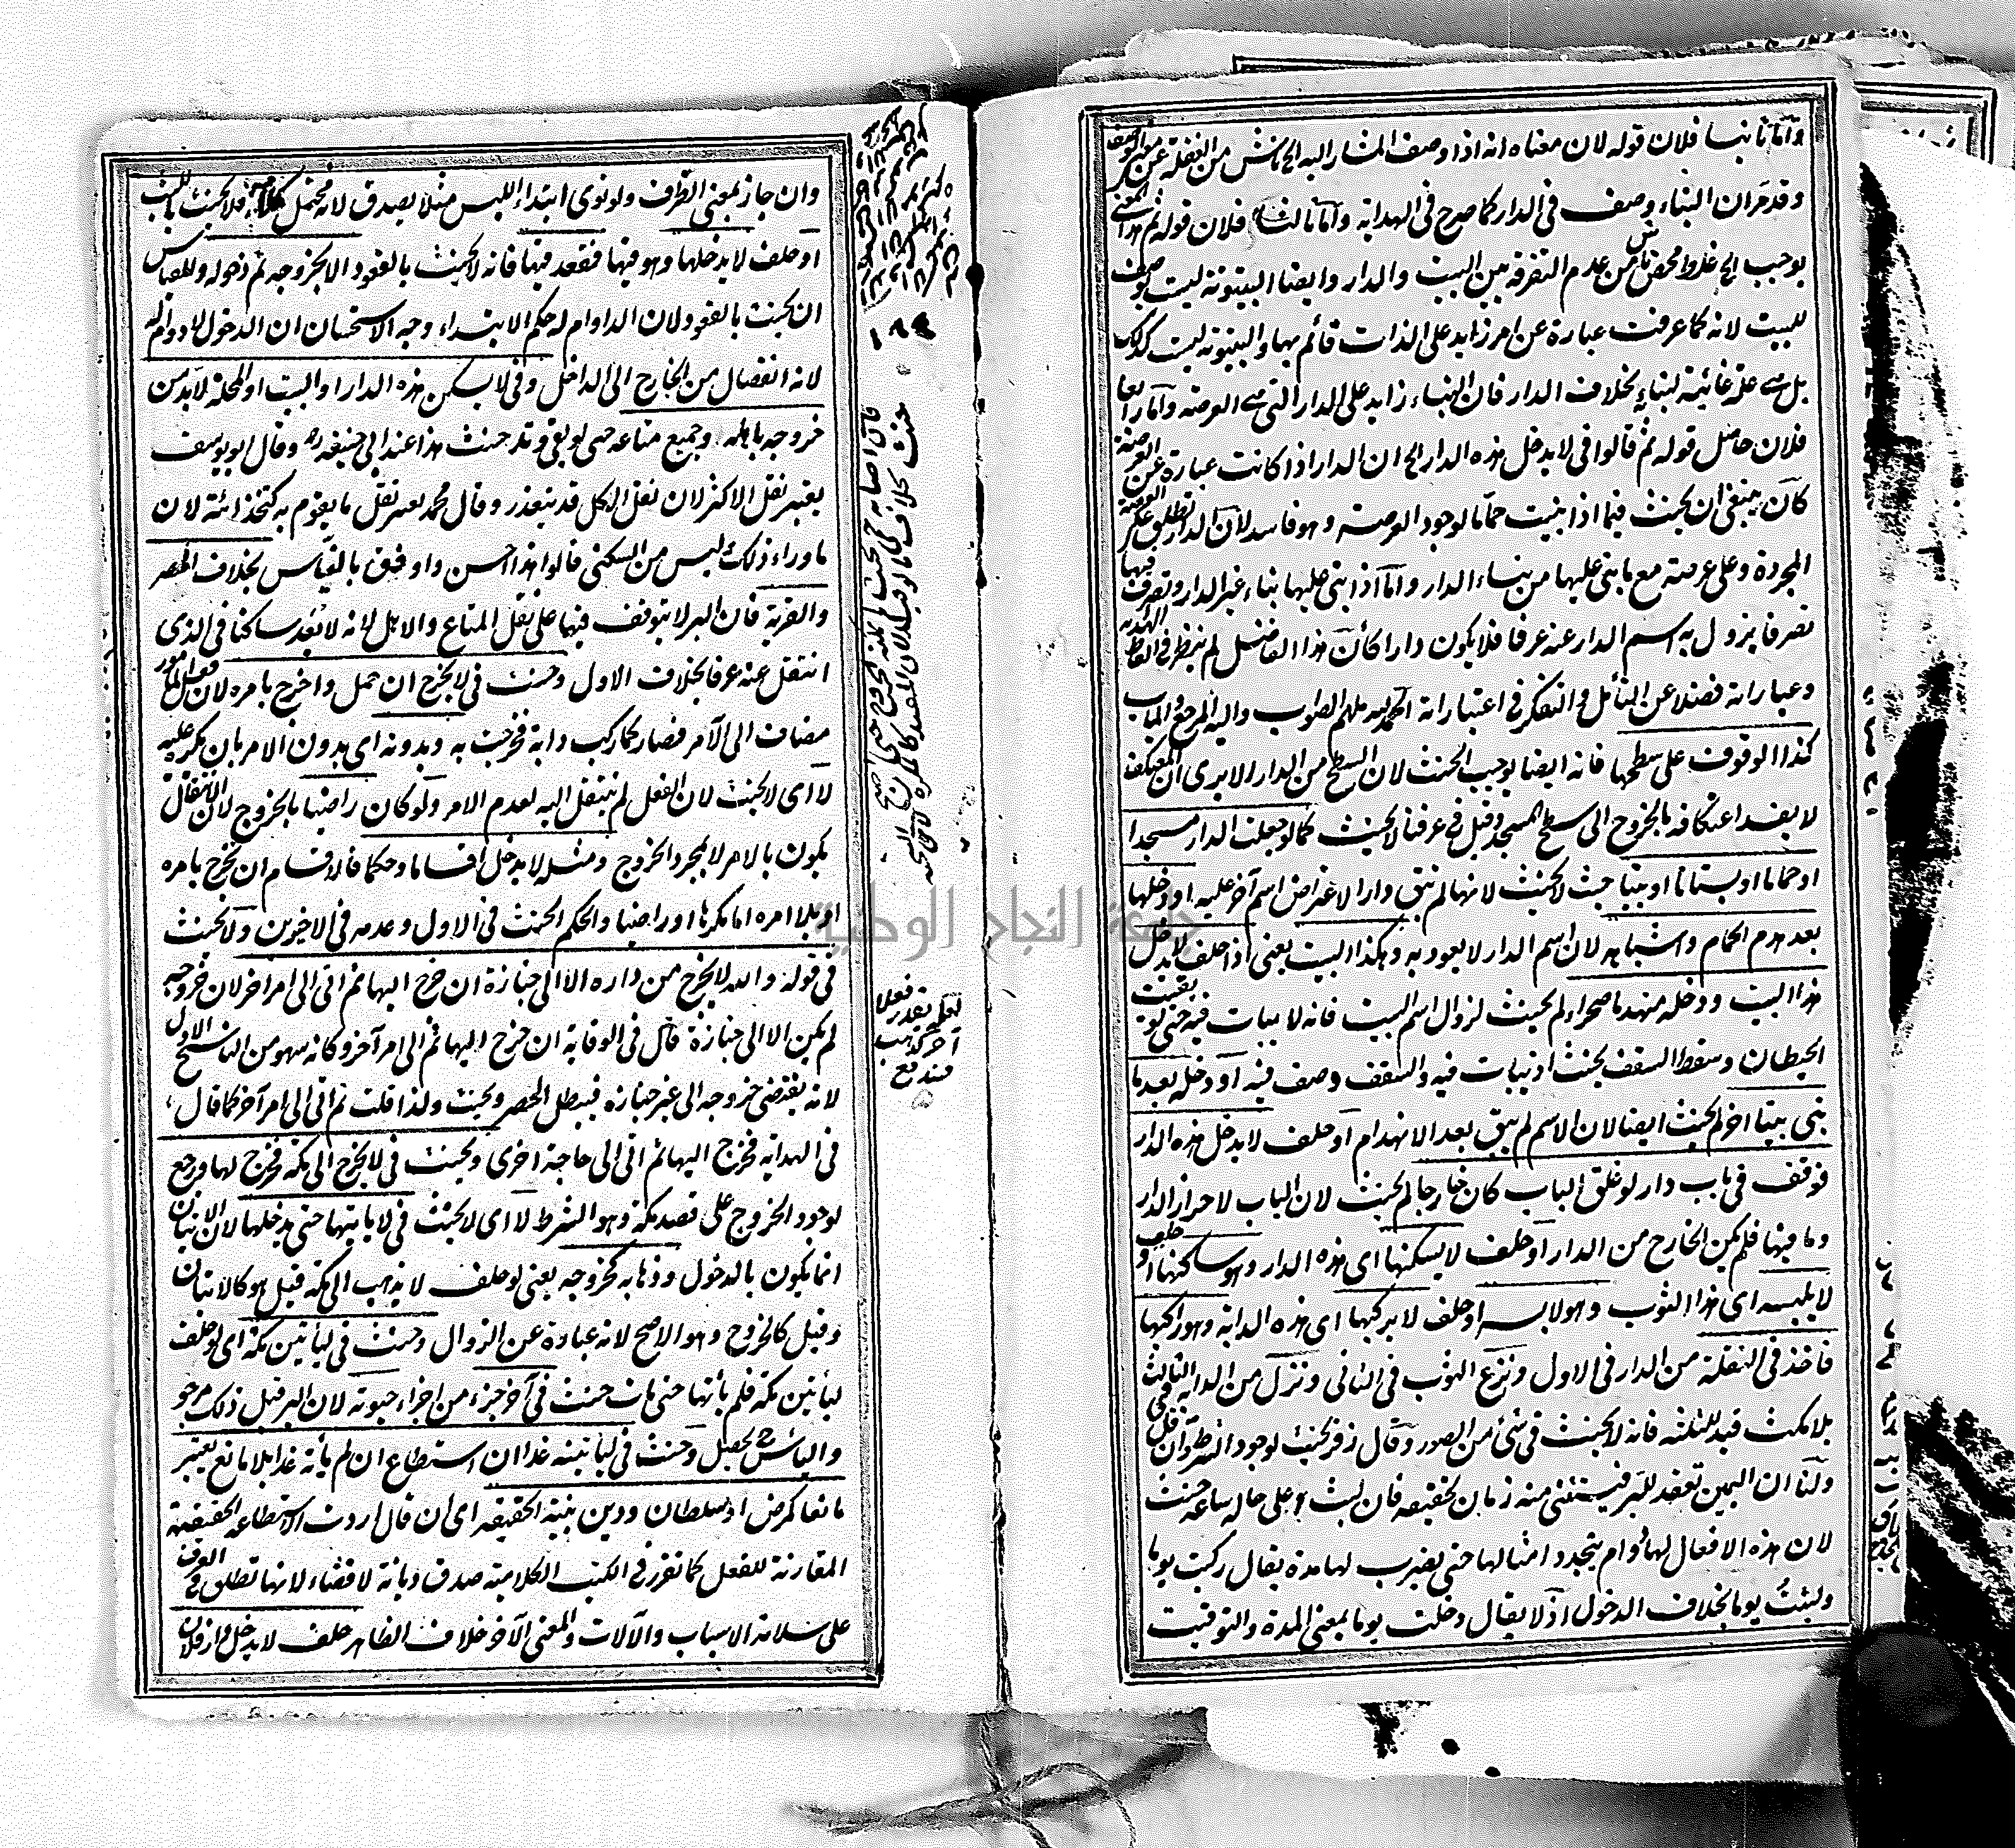 وأما ثانيا فلان قوله لان معناه انه اذا وصف المشار اليه الخ ناش من الغفلة عن معنى الوصف
وقد مر ان البناء وصف في الدار كما صرح في الهداية وأما ثالثا فلان قوله ثم هذا المعنى
يوجب الخ غلط محض ناش من عدم التفرقة بين البيت والدار وايضا البيتوتة ليست بوصف
للبيت لانه كما عرفت عبارة عن امر زايد على الذات قائم بها والبيتوتة ليست كذلك
بل هي علة غائية لبنائه بخلاف الدار فان البناء زايد على الدار التي هي العرصة وأما رابعا
فلان حاصل قوله ثم قالوا في لا يدخل هذه الدار الخ ان الدار اذا كانت عبارة عن العرصة
كان ينبغي ان يحنث فيما اذا بنيت حماما لوجود العرصة وهو فاسد لان الدار تطلق على العرصة
المجردة وعلى عرصة مع ما بني عليها من بناء الدار وأما اذا بني عليها بناء غير الدار وتصرف فيها
تصرفا يزول به اسم الدار عنه عرفا فلا يكون دارا كأن هذا الفاضل لم ينظر في الفاظ الهداية
وعباراته فضلا عن التأمل والتفكر في اعتباراته الحمد لله ملهم الصواب واليه المرجع والمآب
كذا الوقوف على سطحها فانه ايضا يوجب الحنث لان السطح من الدار الا يرى ان المعتكف
لا يفسد اعتكافه بالخروج الى سطح المسجد وقيل في عرفنا لا يحنث كما لو جعلت الدار مسجدا
او حماما او بستانا او بيتا حيث لا يحنث لانها لم تبق دارا لاعتراض اسم آخر عليه او دخلها
بعد هدم الحمام واشباهه لان اسم الدار لا يعود به وهكذا البيت يعني اذا حلف لا يدخل
هذا البيت ودخله منهدما صحراء لم يحنث لزوال اسم البيت فانه لا يبات فيه حتى لو بقيت
الحيطان وسقط السقف يحنث اذ يبات فيه والسقف وصف فيه او دخله بعد ما
بني بيتا آخر لم يحنث ايضا لان الاسم لم يبق بعد الانهدام او حلف لا يدخل هذه الدار
فوقف في باب دار لو غلق الباب كان خارجا لم يحنث لان الباب لاحراز الدار
وما فيها فلم يكن الخارج من الدار او حلف لا يسكنها اي هذه الدار وهو ساكنها او حلف
لا يلبسه اي هذا الثوب وهو لابسه او حلف لا يركبها اي هذه الدابة وهو راكبها
فاخذ في النقلة من الدار في الاول ونزع الثوب في الثاني ونزل من الدابة في الثالث
بلا مكث قيد للثلثه فانه لا يحنث في شئ من الصور وقال زفر يحنث لوجود الشرط وان قل
ولنا ان اليمين تعقد للبر فيستثنى منه زمان تحقيقه فان لبث على حاله ساعة حنث
لان هذه الافعال لها دوام يتجدد امثالها حتى يضرب لها مدة يقال ركبت يوما
ولبثت يوما بخلاف الدخول اذ لا يقال دخلت يوما بمعنى المدة والتوقيت
وان جاز بمعنى الظرف ولو نوى ابتداء اللبس مثلا يصدق لانه محتمل كلامه فلا يحنث باللبث
او حلف لا يدخلها وهو فيها فقعد فيها فانه لا يحنث بالقعود الا بخروجه ثم دخوله والقياس
ان يحنث بالقعود لان الدوام له حكم الابتداء وجه الاستحسان ان الدخول لا دوام له
لانه انفصال من الخارج الى الداخل وفي لا يسكن هذه الدار او البيت او المحلة لا بد من
خروجه باهله وجميع متاعه حتى لو بقي وتد حنث هذا عند ابي حنيفه رح وقال ابو يوسف
يعتبر نقل الاكثر لان نقل الكل قد يتعذر وقال محمد يعتبر نقل ما يقوم به كتخدائية لان
ما وراء ذلك ليس من السكنى قالوا هذا احسن واوفق بالقياس بخلاف المصر
والقرية فان البر لا يتوقف فيها على نقل المتاع والاهل لانه لا يعد ساكنا في الذي
انتقل عنه عرفا بخلاف الاول وحنث في لا يخرج ان حمل واخرج بامره لان فعل المأمور
مضاف الى الآمر فصار كما ركب دابة فخرجت به وبدونه اي بدون الامر بان يكره عليه
لا اي لا يحنث لان الفعل لم ينتقل اليه لعدم الامر ولو كان راضيا بالخروج لان الانتقال
يكون بالامر لا بمجرد الخروج ومثله لا يدخل اقساما وحكما فالاقسام ان يخرج بامره
او بلا امره اما مكرها او راضيا والحكم الحنث في الاول وعدمه في الاخيرين ولا يحنث
في قوله والله لا يخرج من داره الا الى جنازة ان خرج اليها ثم اتى الى امر اخر لان خروجه
لم يكن الا الى جنازة قال في الوقاية ان خرج اليها ثم الى امر آخر وكانه سهو من الناسخ الاول
لانه يقتضي خروجه الى غير جنازه فيبطل الحصر ويحنث ولذا قلت ثم اتى الى امر آخر كما قال
في الهداية فخرج اليها ثم اتى الى حاجة اخرى ويحنث في لا يخرج الى مكة فخرج لها ورجع
لوجود الخروج على قصد مكة وهو الشرط لا اي لا يحنث في لا يأتيها حتى يدخلها لان الاتيان
انما يكون بالدخول وذهابه كخروجه يعني لو حلف لا يذهب الى مكة قيل هو كالاتيان
وقيل كالخروج وهو الاصح لانه عبارة عن الزوال وحنث في ليأتين مكة اي لو حلف
ليأتين مكة فلم يأتها حتى مات حنث في آخر جزء من اجزاء حيوته لان البر قبل ذلك مرجو
واليأس ح يحصل وحنث في ليأتينه غدا ان استطاع ان لم يأته غدا بلا مانع يعتبر
مانعا كمرض او سلطان ودين بنية الحقيقه اي ان قال اردت الاستطاعة الحقيقية
المقارنة للفعل كما تقرر في الكتب الكلامية صدق ديانة لا قضاء لانها تطلق في العرف
على سلامة الاسباب والآلات والمعنى الآخر خلاف الظاهر حلف لا يدخل دار فلان
١٨٤
لعله تقدير فعلا
آخر كذهب
مندفع
جامعة النجاح الوطنية